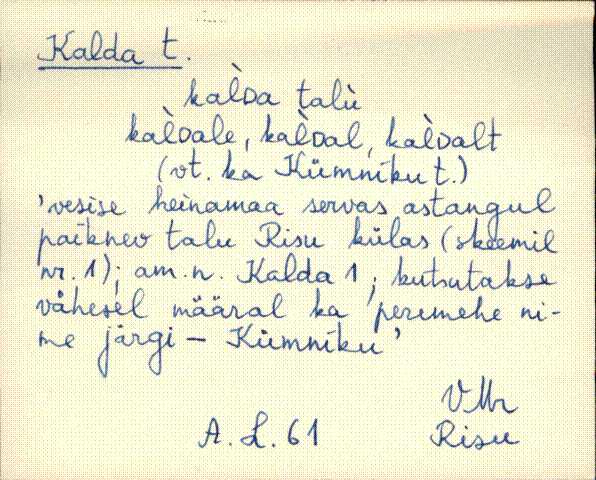 Kalda t.
kal̀ᴅa talù
kal̀ᴅale, kal̀ᴅal, kal̀ᴅalt
(vt. ka Kümniku t.)
'vesise heinamaa servas astangul
paiknev talu Risu külas (skeemil
nr. 1); am. n. Kalda 1; kutsutakse
vähesel määral ka peremehe ni-
me järgi – Kümniku'
VMr
A. L. 61 Risu